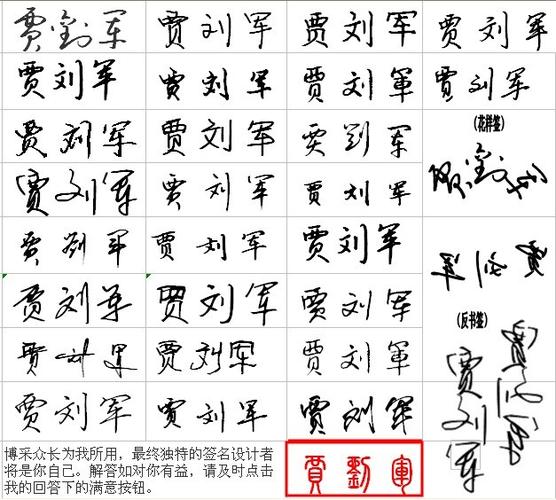 贾劉军 贾刘军 贾刘军 贾刘军
贾刘军 贾刘军 贾刘軍 贾刘军
贾刘军 贾刘军 贾刘军
(花样签)
贾劉军
贾刘军 贾刘军 贾刘军
贾刘军 贾刘军 贾刘军
贾刘军
贾刘军 贾刘军 贾刘军
(反书签)
贾刘军 贾刘军 贾刘軍
贾刘军 贾刘军 贾刘军
贾刘军
博采众长为我所用，最终独特的签名设计者
将是你自己。解答如对你有益，请及时点击
我的回答下的满意按钮。
賈劉軍